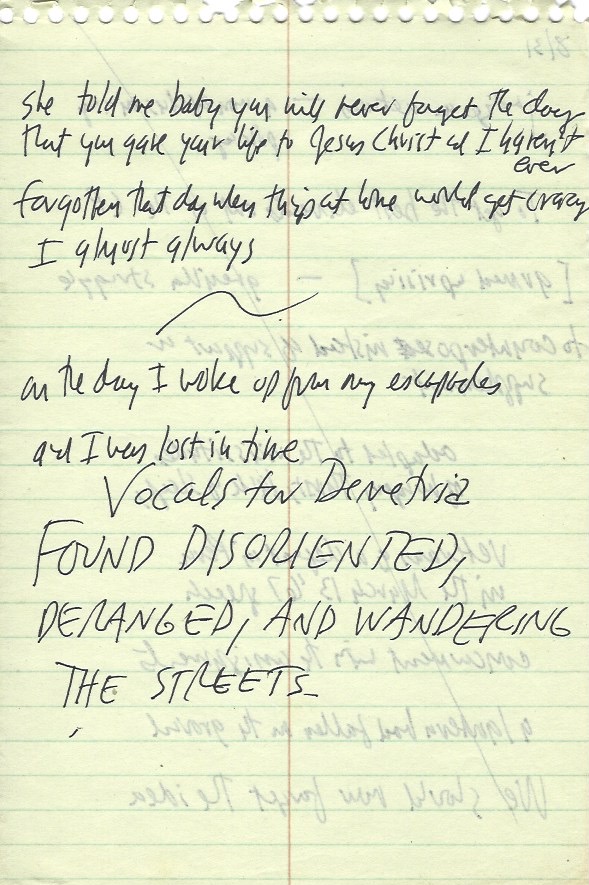 she told me baby you will never forget the day
that you gave your life to Jesus Christ and I haven't
ever
forgotten that day when things at home would get crazy
I almost always
on the day I woke up from my escapades
and I was lost in time
Vocals for Demetria
FOUND DISORIENTED,
DERANGED, AND WANDERING
THE STREETS